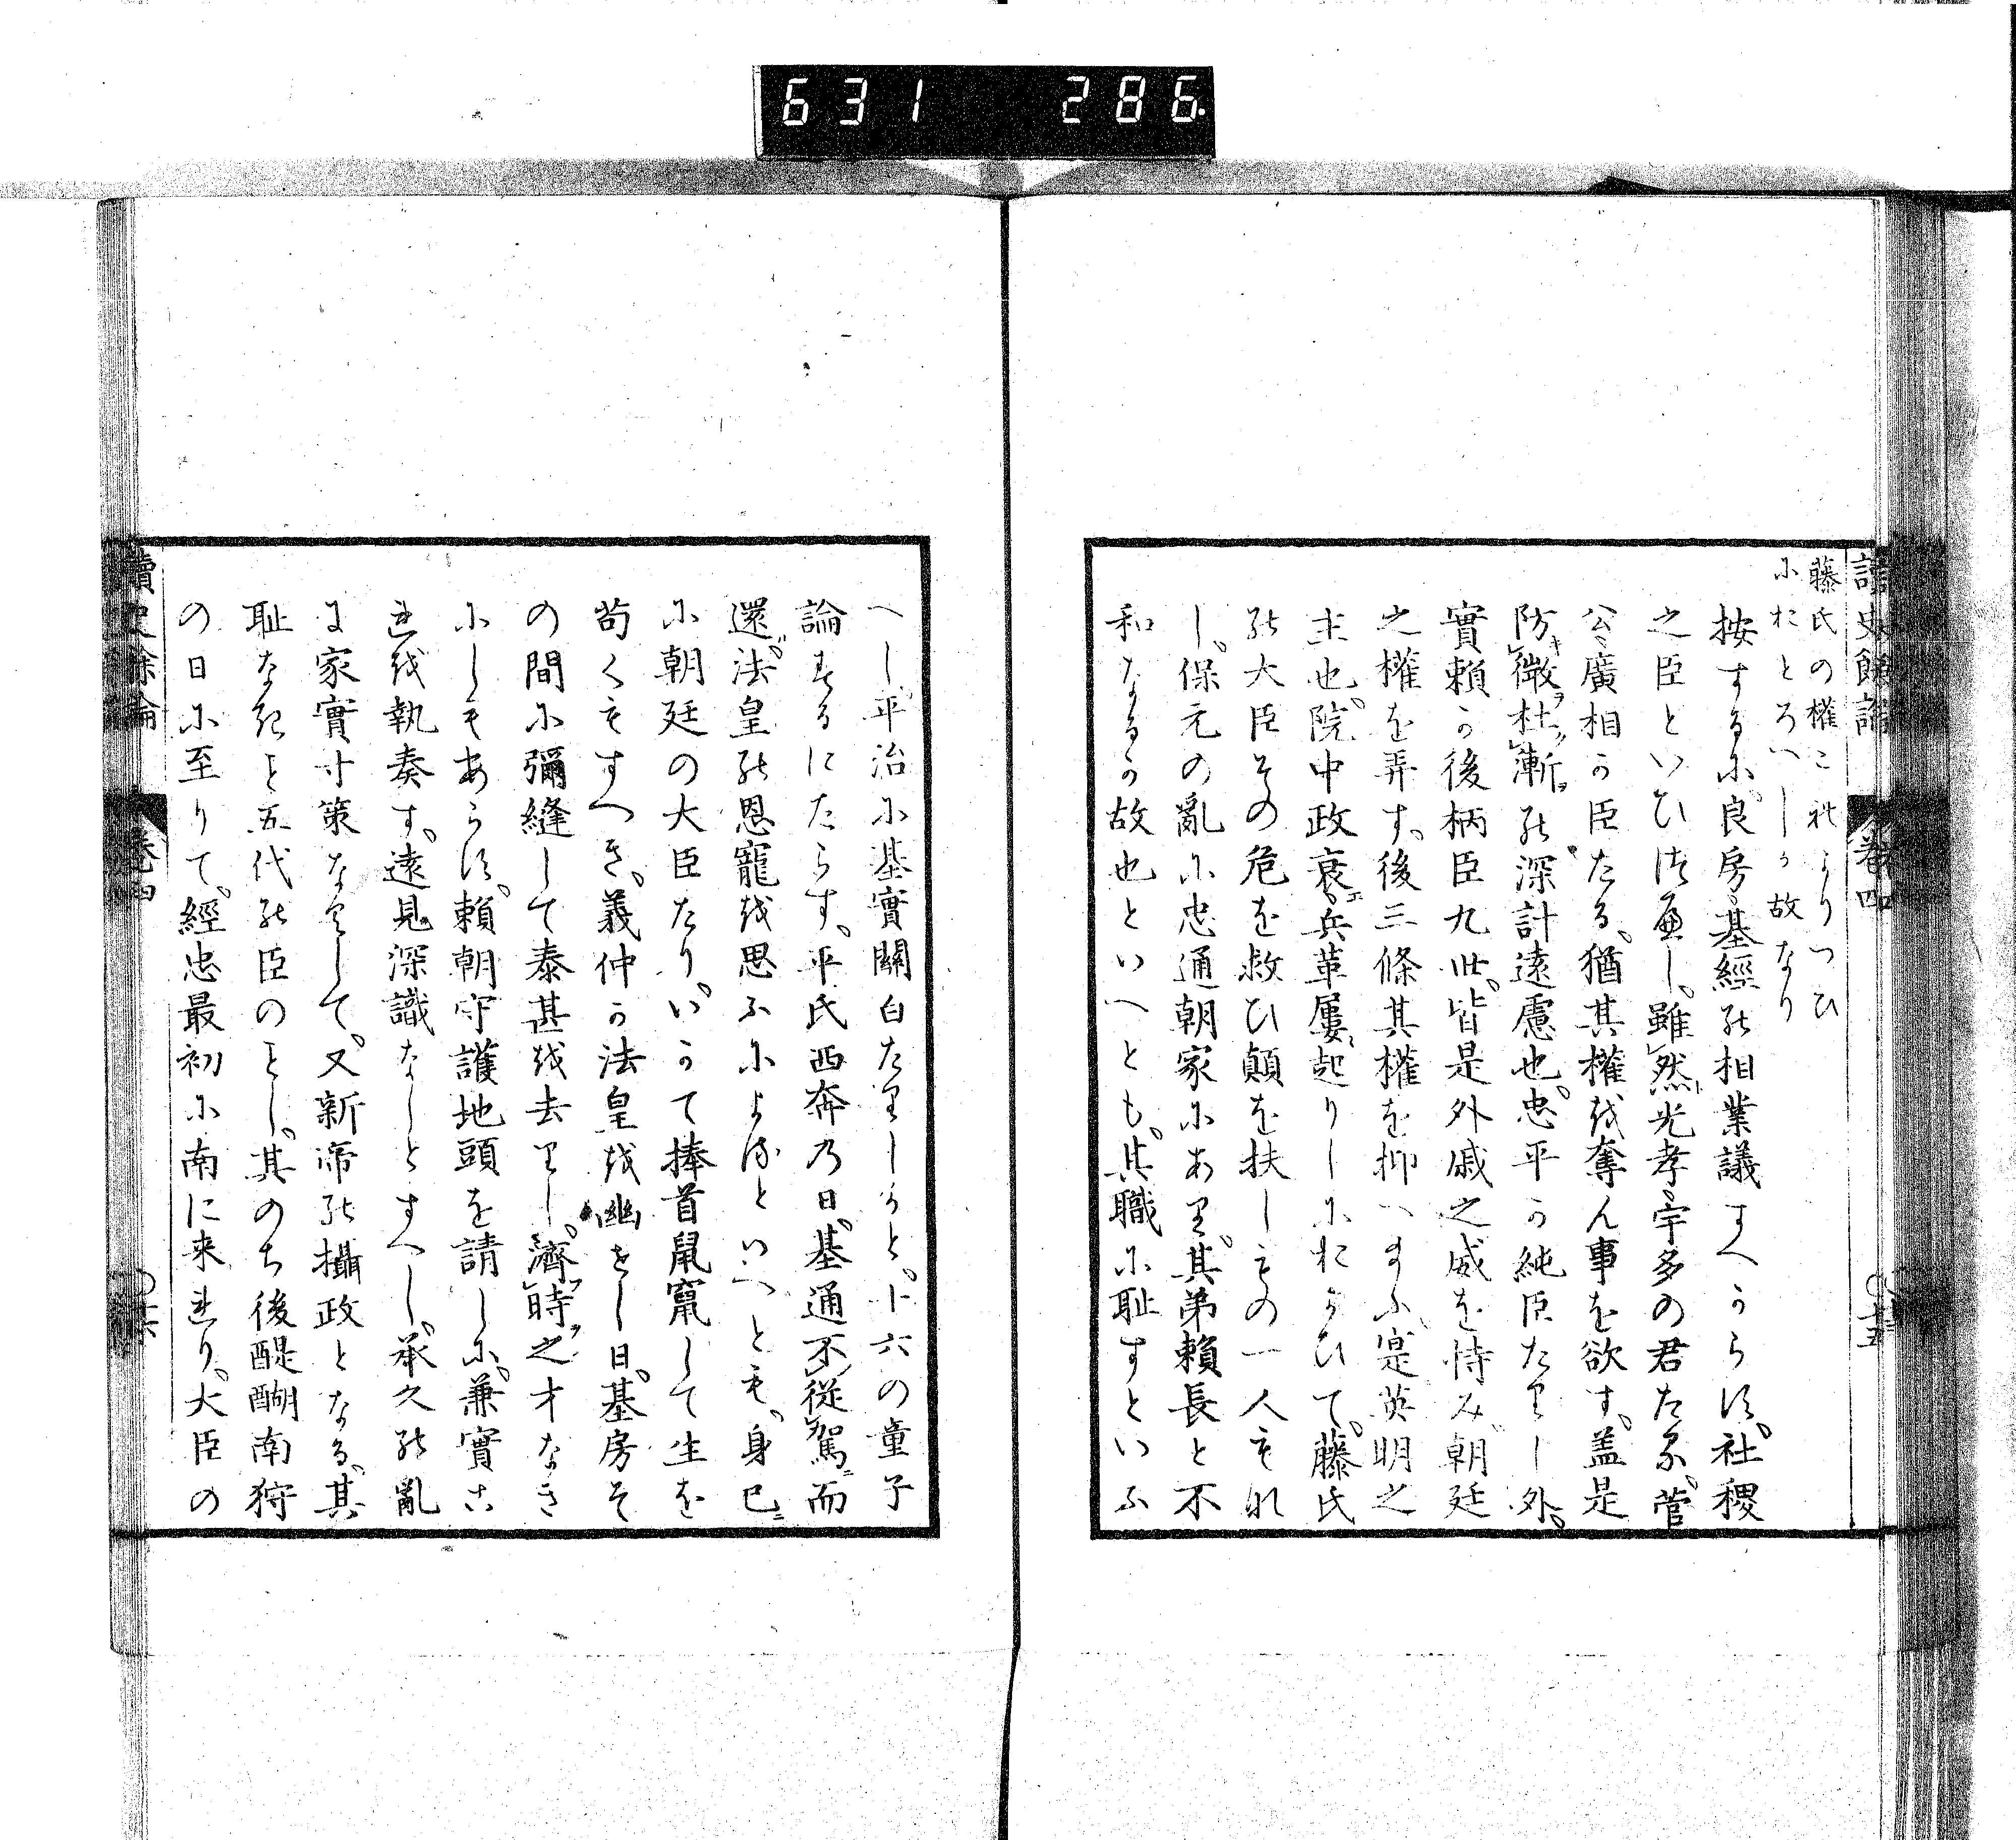 631 286
讀史餘論 卷四 〇十五
藤氏の權これよりつひ
におとろへしか故なり
按するに良房基經の相業議すへからす社稷
之臣といひつへし雖然光孝宇多の君たる菅
公廣相か臣たる猶其權を奪ん事を欲す盖是
防微杜漸の深計遠慮也忠平か純臣たりし外
實賴か後柄臣九世皆是外戚之威を恃み朝廷
之權を弄す後三條其權を抑へ給ふ寔英明之
主也院中政衰兵革屢起りしにおよひて藤氏
の大臣その危を救ひ顛を扶しもの一人もな
し保元の亂に忠通朝家にあり其弟賴長と不
和なるか故也といへとも其職に恥すといふ
へし平治に基實關白たりしかと十六の童子
論するにたらす平氏西奔乃日基通不從駕而
還法皇の恩寵を思ふによるといへとも身已
に朝廷の大臣たりいかて捧首鼠竄して生を
苟くもすへき義仲か法皇を幽せし日基房そ
の間に彌縫して泰甚を去りし濟時之才なき
にしもあらす賴朝守護地頭を請しに兼實こ
れを執奏す遠見深識なしとすへし承久の亂
に家實寸策なくして又新帝の攝政となる其
恥なきこと五代の臣のことし其のち後醍醐南狩
の日に至りて經忠最初に南に来れり大臣の
讀史餘論 卷四 〇十六